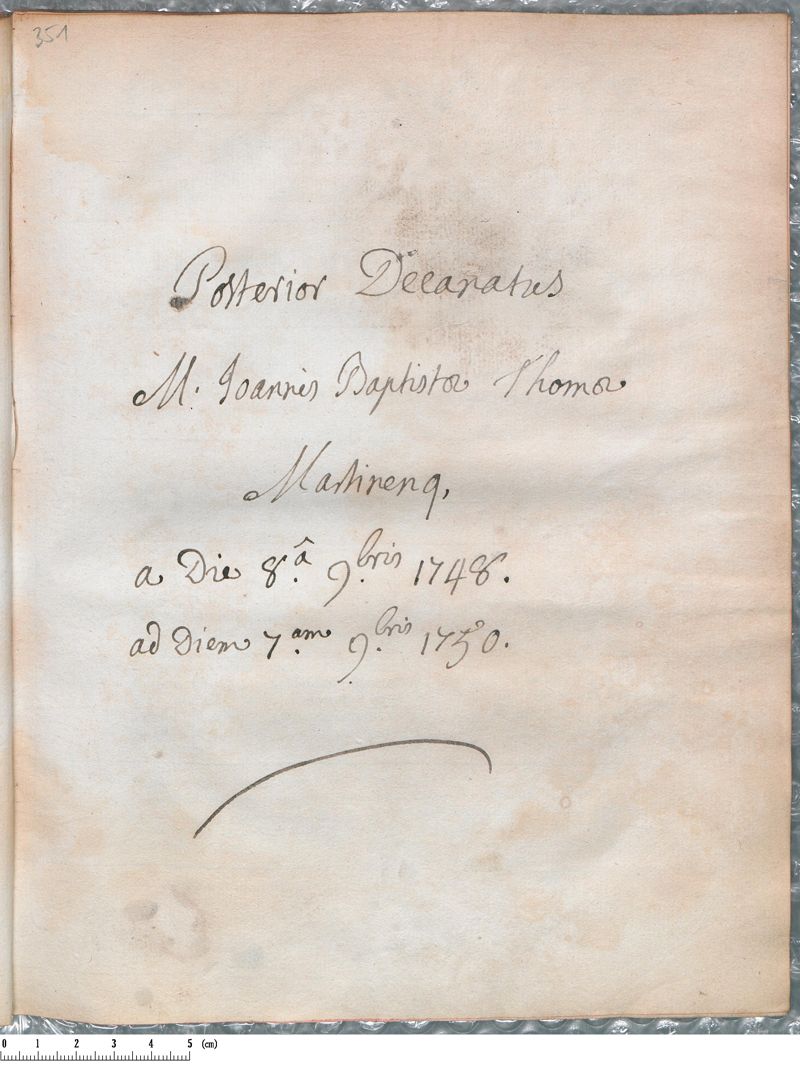 351
Posterior Decanatus
M. Joannis Baptistæ Thomæ
Martinenq,
a Die 8.â 9.bris 1748.
ad Diem 7.am 9.bris 1750.
0 1 2 3 4 5 (cm)